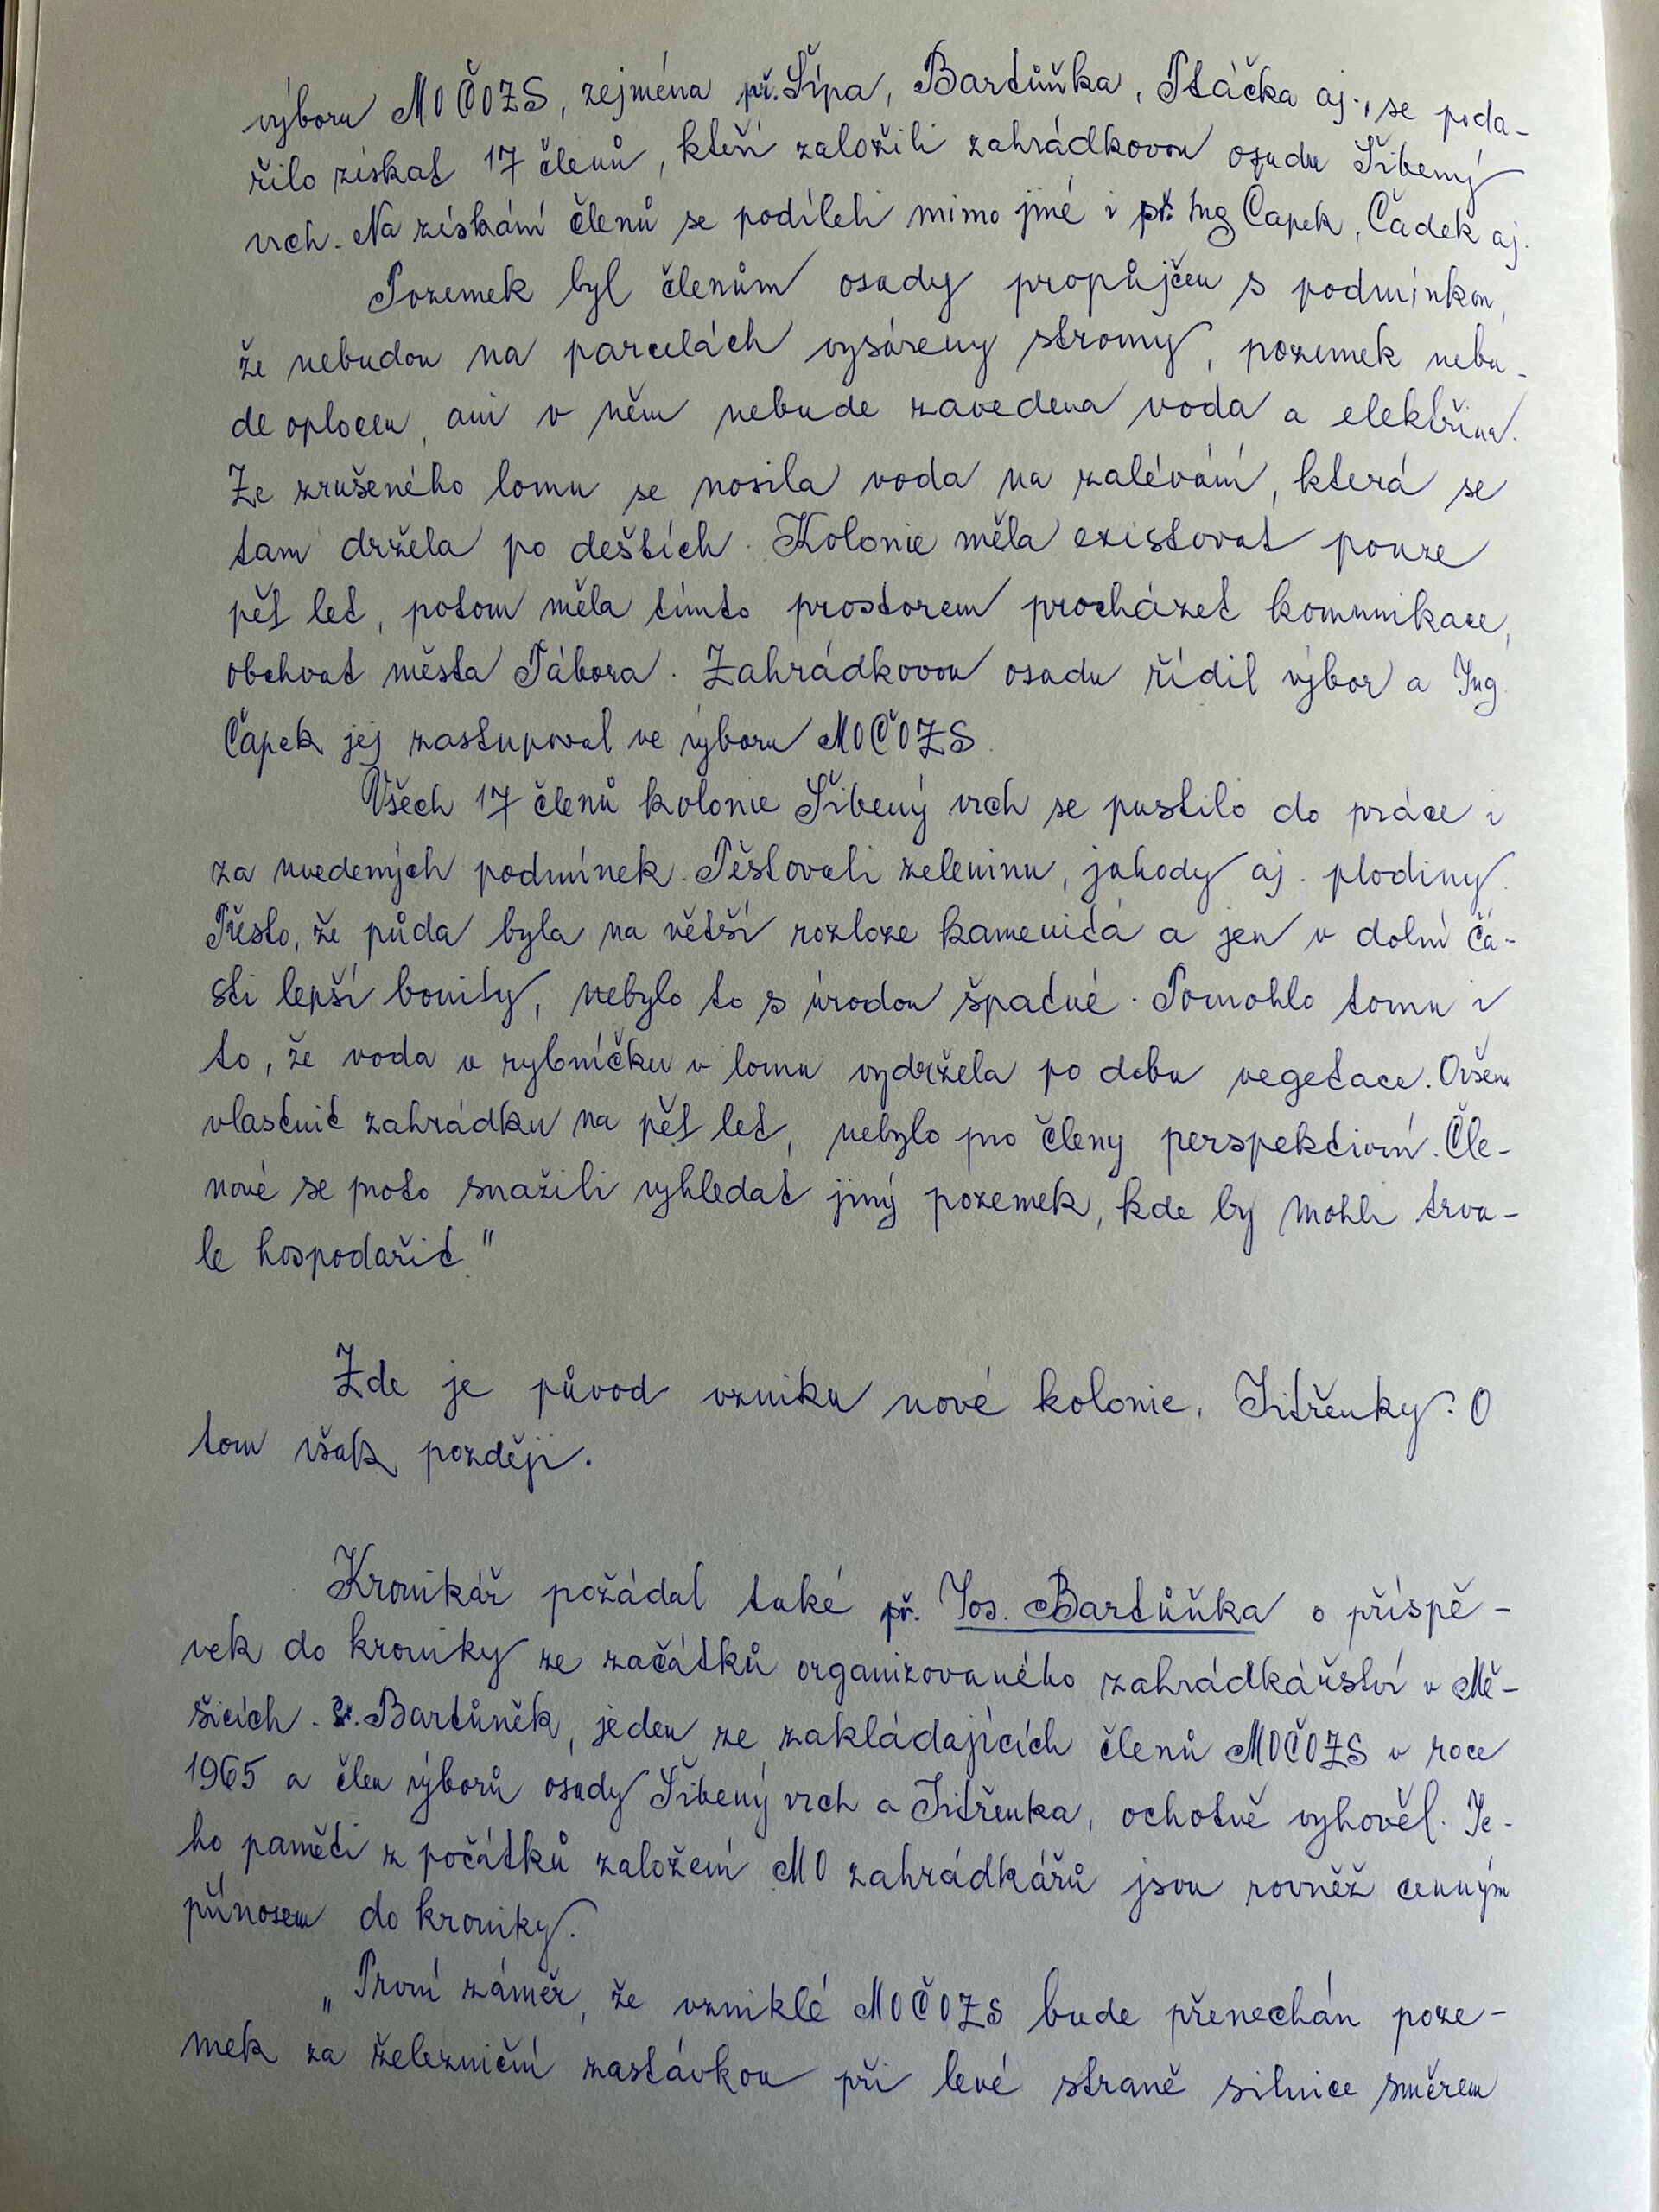 výboru MOČOZS, zejména př. Šípa, Bartůňka, Ptáčka aj., se poda-
řilo získat 17 členů, kteří založili zahrádkovou osadu Šibený
vrch. Na získání členů se podíleli mimo jiné i př. Ing Čapek, Čadek aj.
Pozemek byl členům osady propůjčen s podmínkou,
že nebudou na parcelách vysázeny stromy, pozemek nebu-
de oplocen, ani v něm nebude zavedena voda a elektřina.
Ze zrušeného lomu se nosila voda na zalévání, která se
tam držela po deštích. Kolonie měla existovat pouze
pět let, potom měla tímto prostorem procházet komunikace,
obchvat města Tábora. Zahrádkovou osadu řídil výbor a Ing.
Čapek jej zastupoval ve výboru MOČOZS.
Všech 17 členů kolonie Šibený vrch se pustilo do práce i
za uvedených podmínek. Pěstovali zeleninu, jahody aj. plodiny.
Přesto, že půda byla na větší rozloze kamenitá a jen v dolní čá-
sti lepší bonity, nebylo to s úrodou špatné. Pomohlo tomu i
to, že voda v rybníčku v lomu vydržela po dobu vegetace. Ovšem
vlastnit zahrádku na pět let, nebylo pro členy perspektivní. Čle-
nové se proto snažili vyhledat jiný pozemek, kde by mohli trva-
le hospodařit."
Zde je původ vzniku nové kolonie, Jitřenky. O
tom však později.
Kronikář požádal také př. Jos. Bartůňka o příspě-
vek do kroniky ze začátků organizovaného zahrádkářství v Mě-
šicích. Bartůněk, jeden ze zakládajících členů MOČOZS v roce
1965 a člen výborů osady Šibený vrch a Jitřenka, ochotně vyhověl. Je-
ho paměti z počátků založení MO zahrádkářů jsou rovněž cenným
přínosem do kroniky.
„První záměr, že vzniklé MOČOZS bude přenechán poze-
mek za železniční zastávkou při levé straně silnice směrem